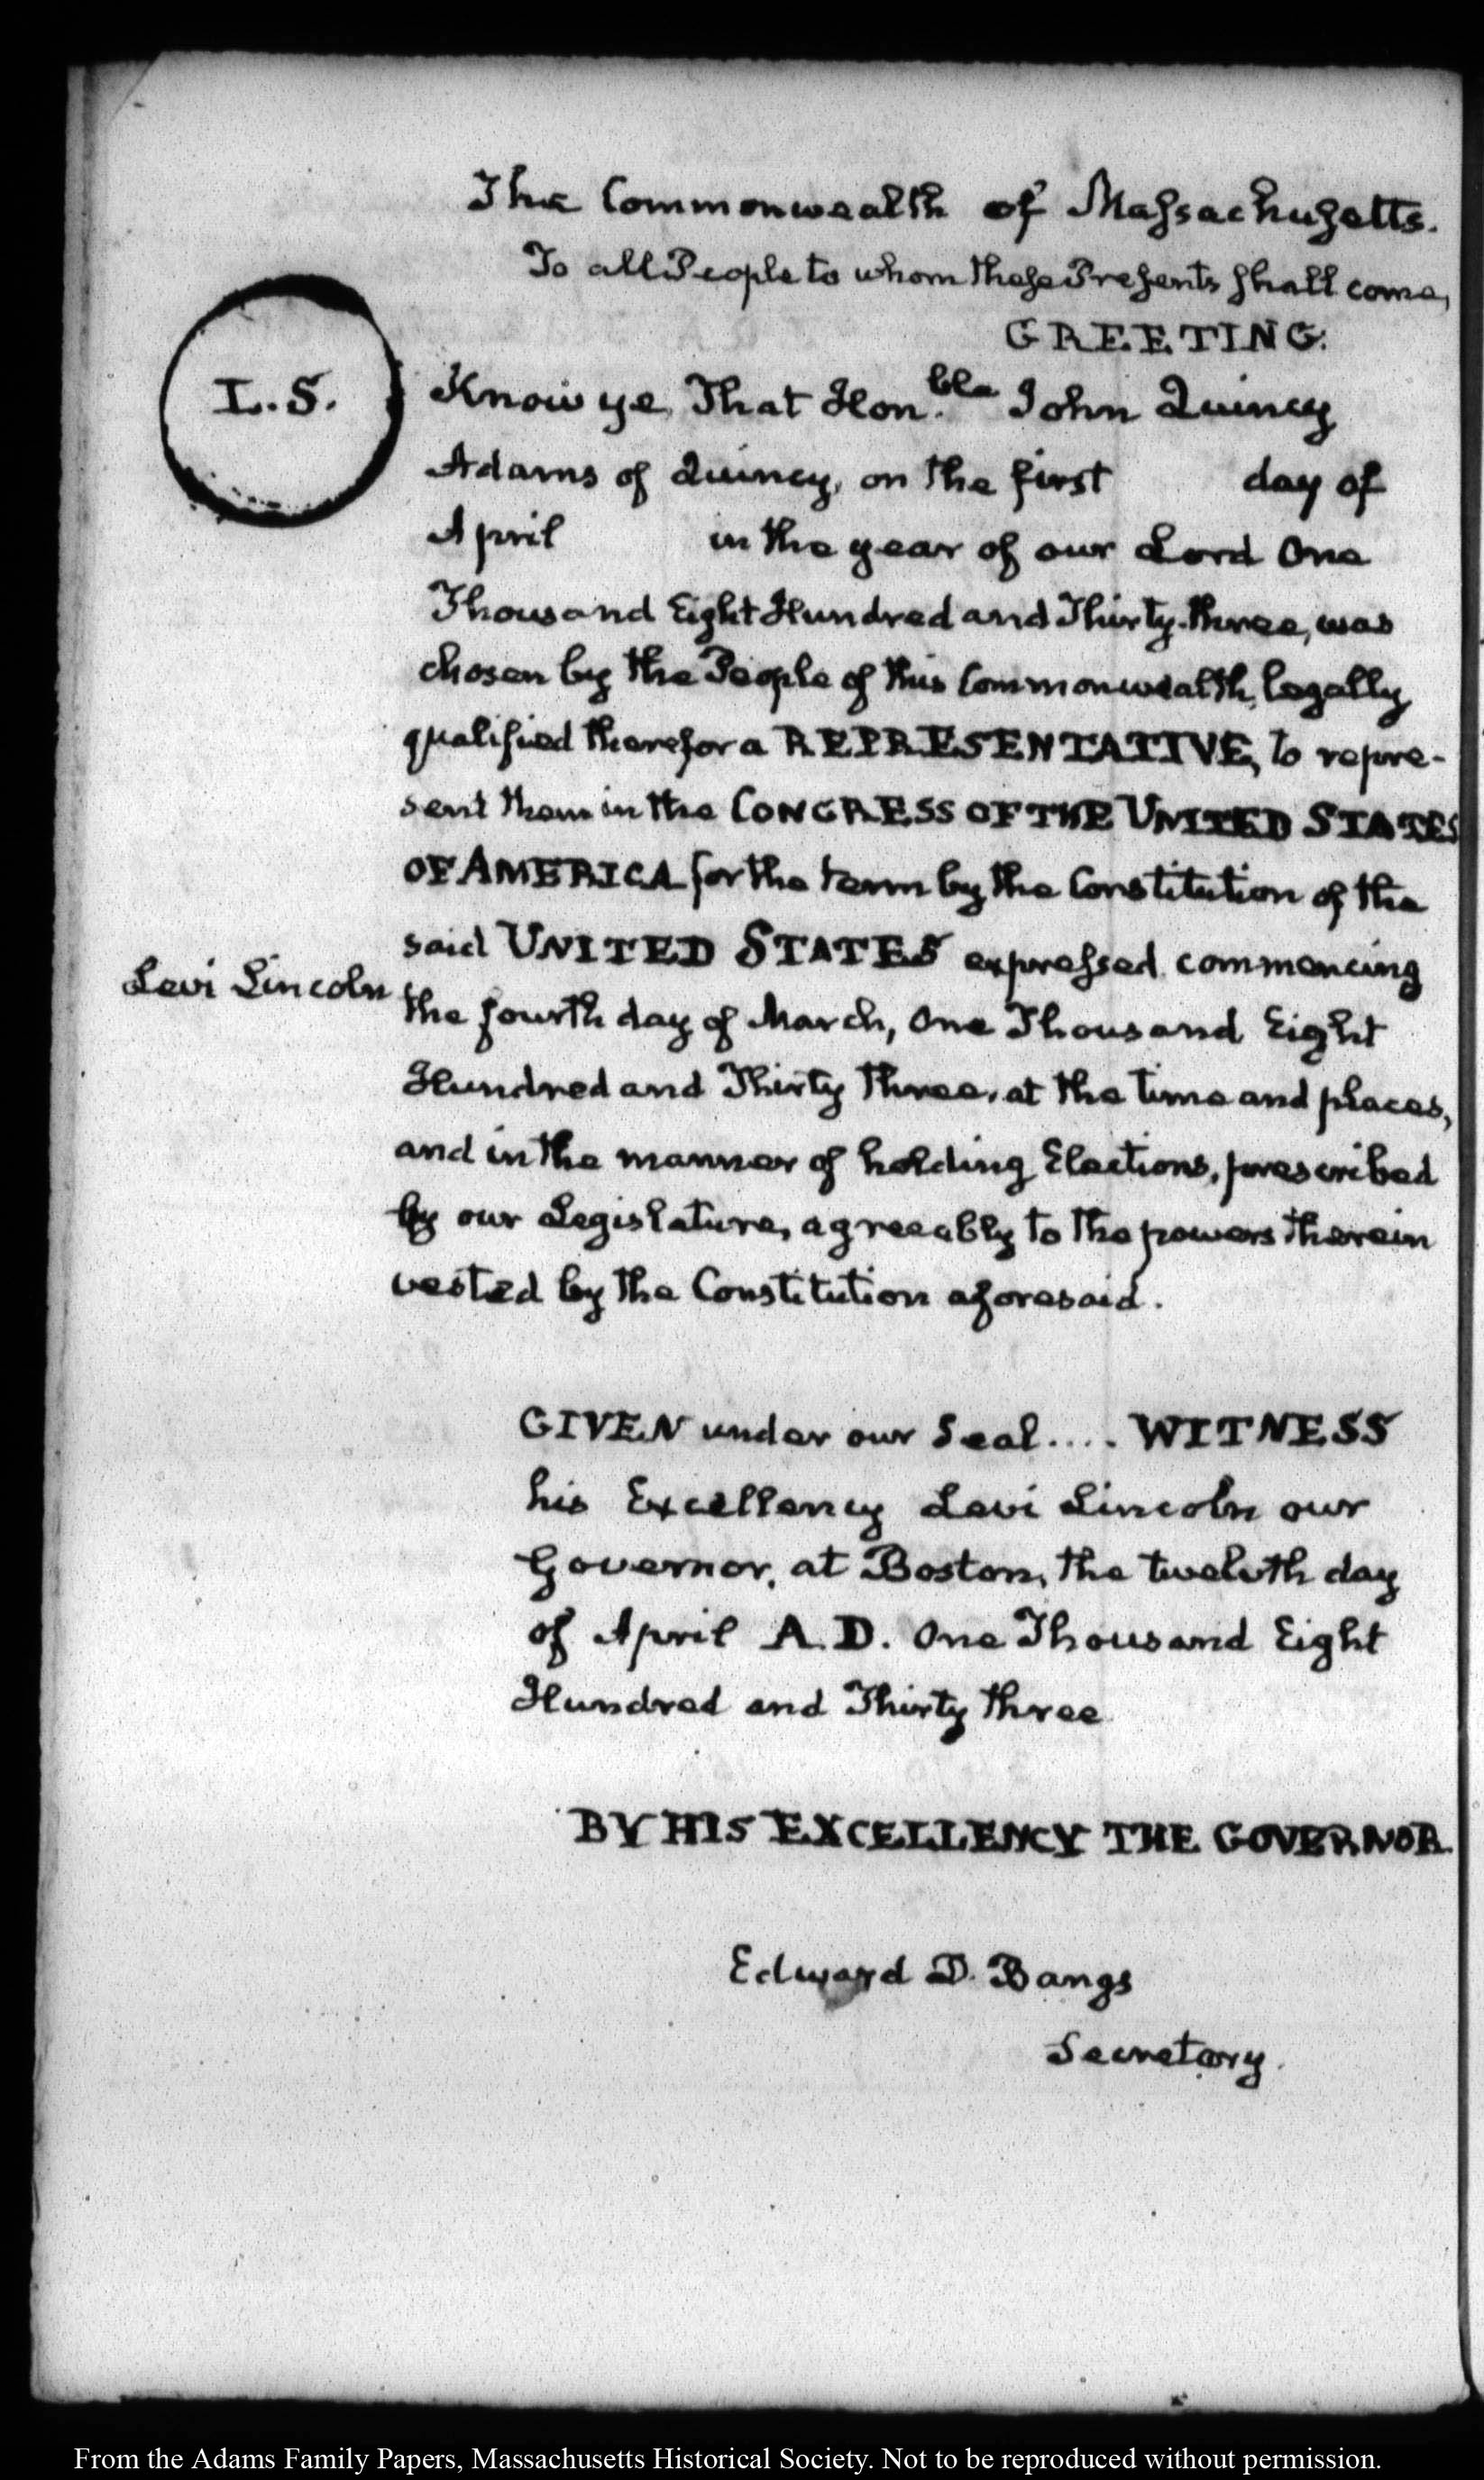 The Commonwealth of Massachusetts.
To all People to whom these Presents shall come,
GREETING:
L.S.
Know ye, That Hon.ble John Quincy
Adams of Quincy, on the first day of
April in the year of our Lord One
Thousand Eight Hundred and Thirty-three, was
chosen by the People of this Commonwealth, legally
qualified therefor a REPRESENTATIVE, to repre-
sent them in the CONGRESS OF THE UNITED STATES
OF AMERICA for the term by the Constitution of the
said UNITED STATES expressed commencing
Levi Lincoln
the fourth day of March, One Thousand Eight
Hundred and Thirty Three, at the time and places,
and in the manner of holding Elections, prescribed
by our Legislature, agreeably to the powers therein
vested by the Constitution aforesaid.
GIVEN under our Seal.... WITNESS
his Excellency Levi Lincoln our
Governor, at Boston, the twelvth day
of April A.D. One Thousand Eight
Hundred and Thirty Three
BY HIS EXCELLENCY THE GOVERNOR.
Edward D. Bangs
Secretary.
From the Adams Family Papers, Massachusetts Historical Society. Not to be reproduced without permission.